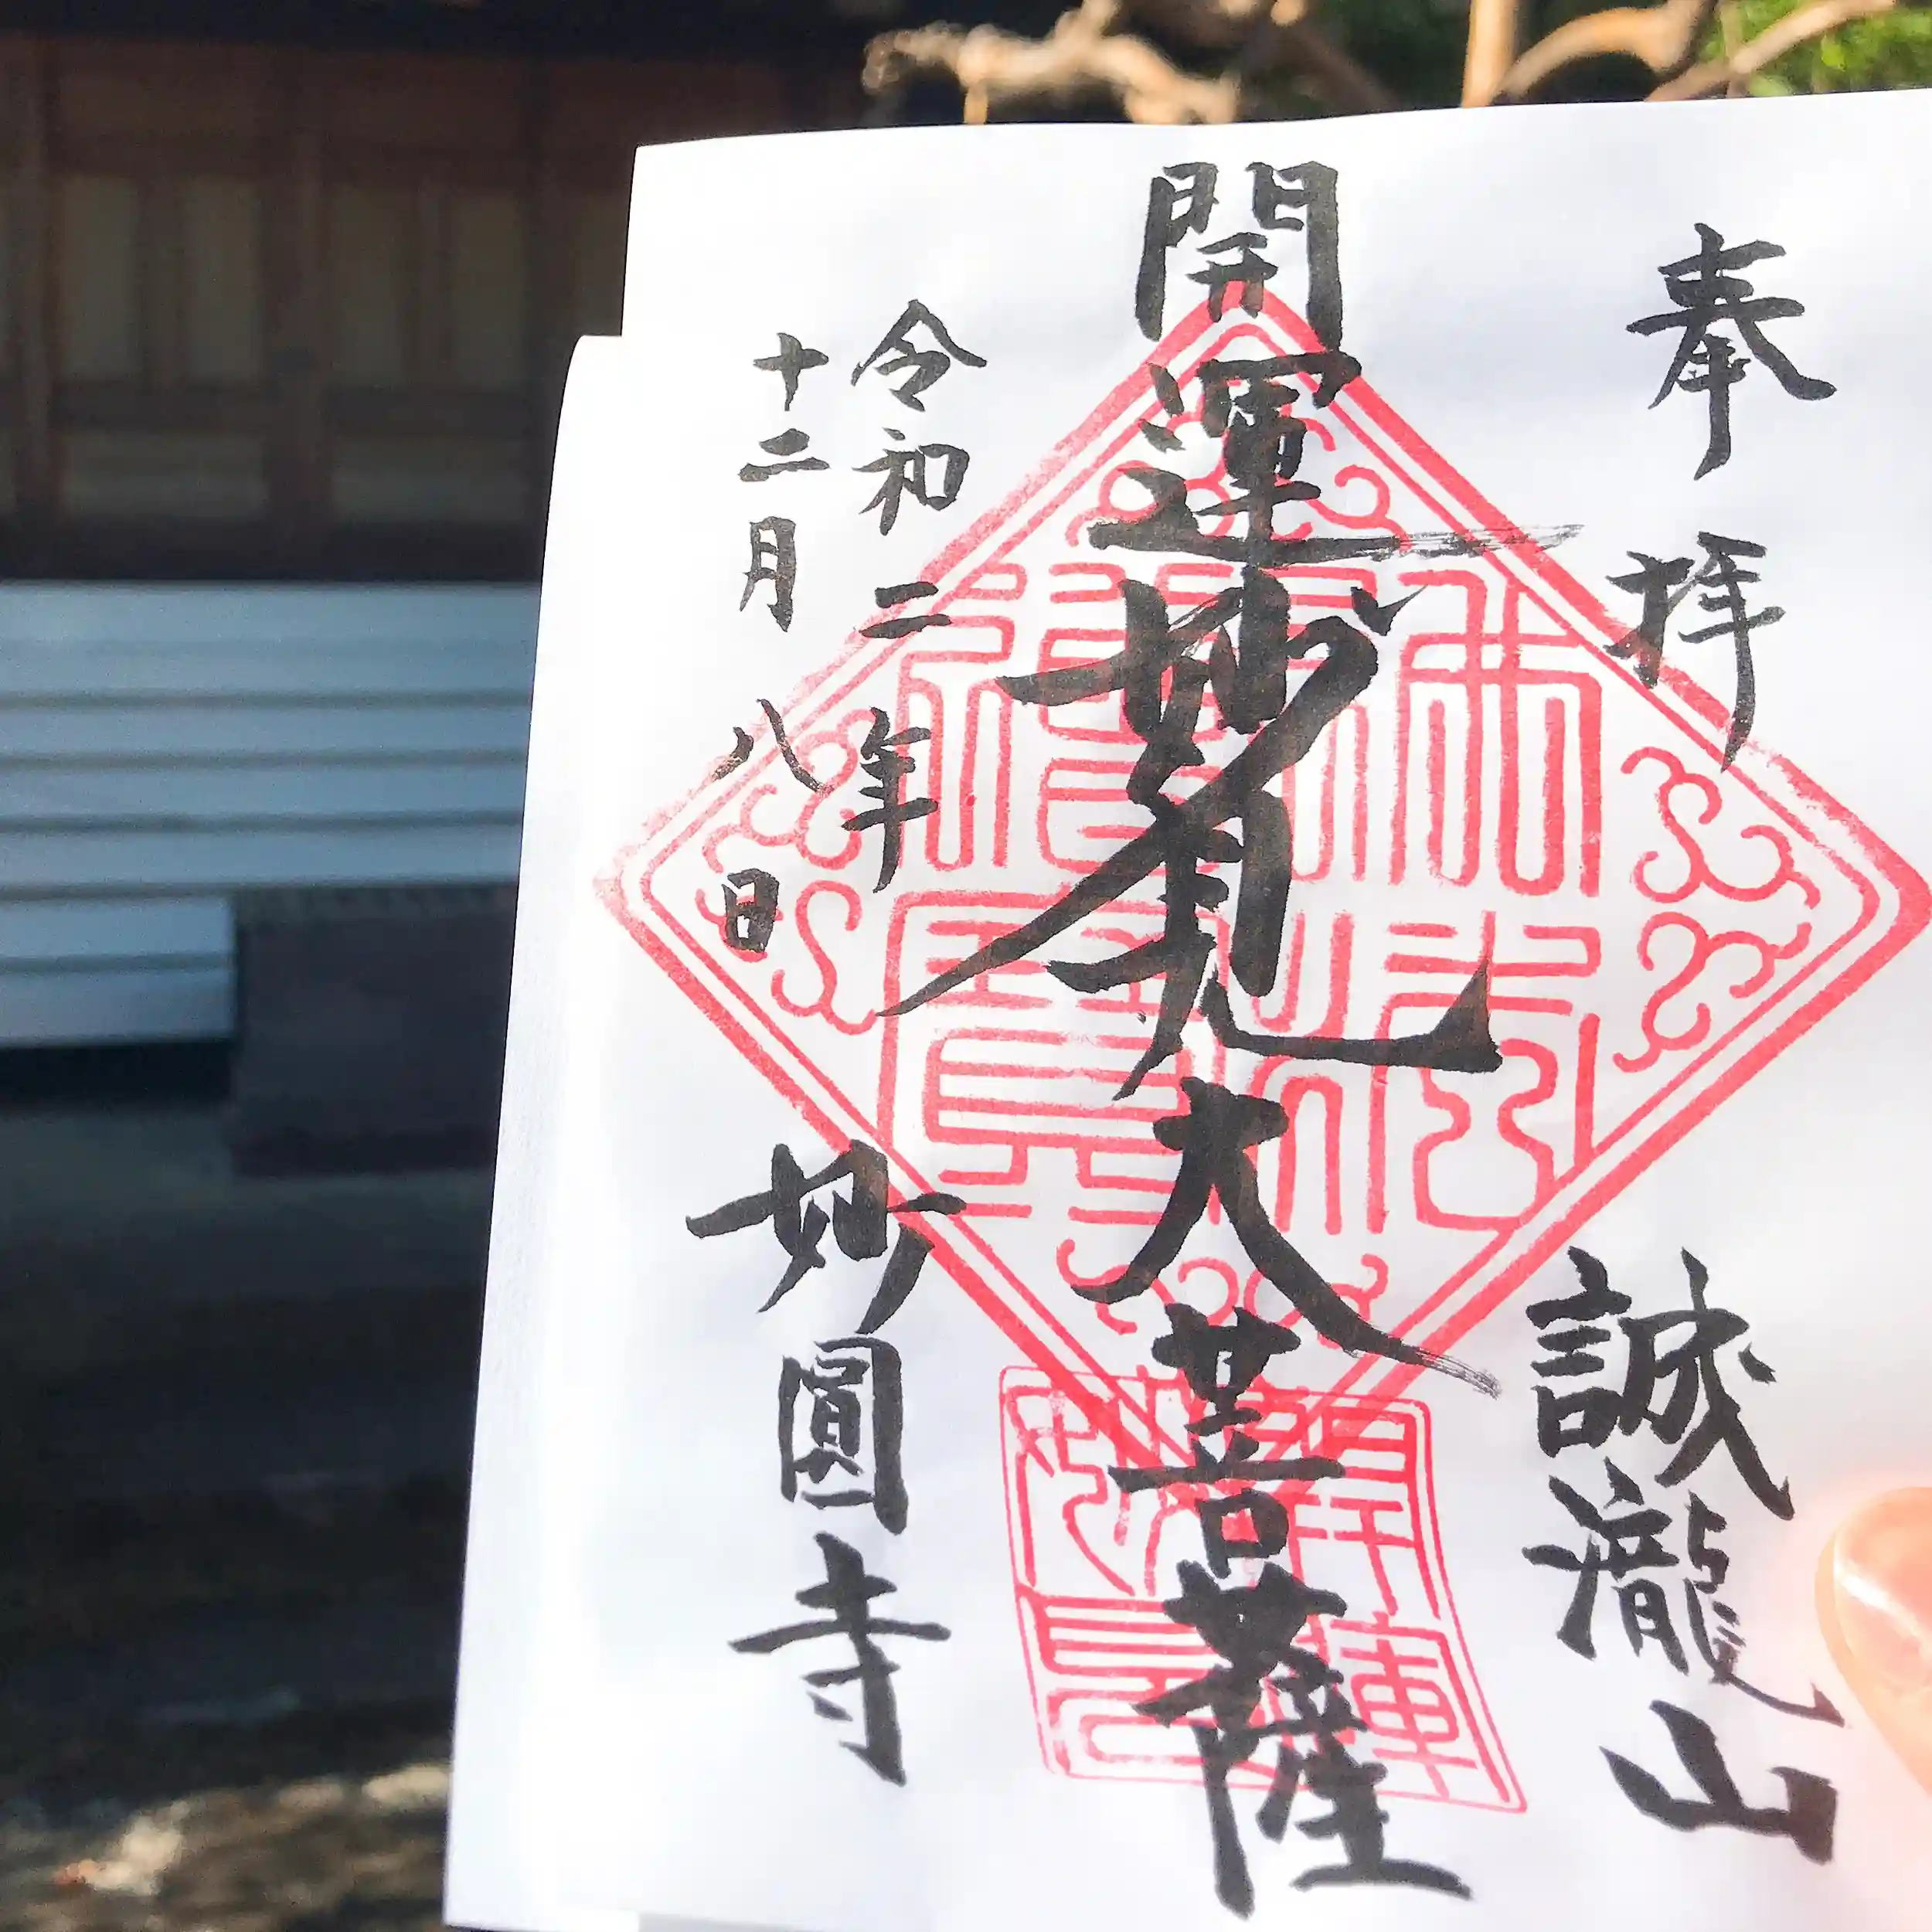 奉拝
誠瀧山
開運妙見大菩薩
令和二年
十二月八日
妙圓寺
佛法僧寳